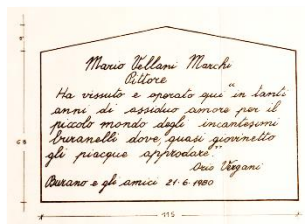 Mario Vellani Marchi
Pittore
Ha vissuto e operato qui "in tanti
anni di assiduo amore per il
piccolo mondo degli incantesimi
buranelli dove, quasi giovinetto
gli piacque approdare".
Orio Vergani
Burano e gli amici 21-6-1980
115